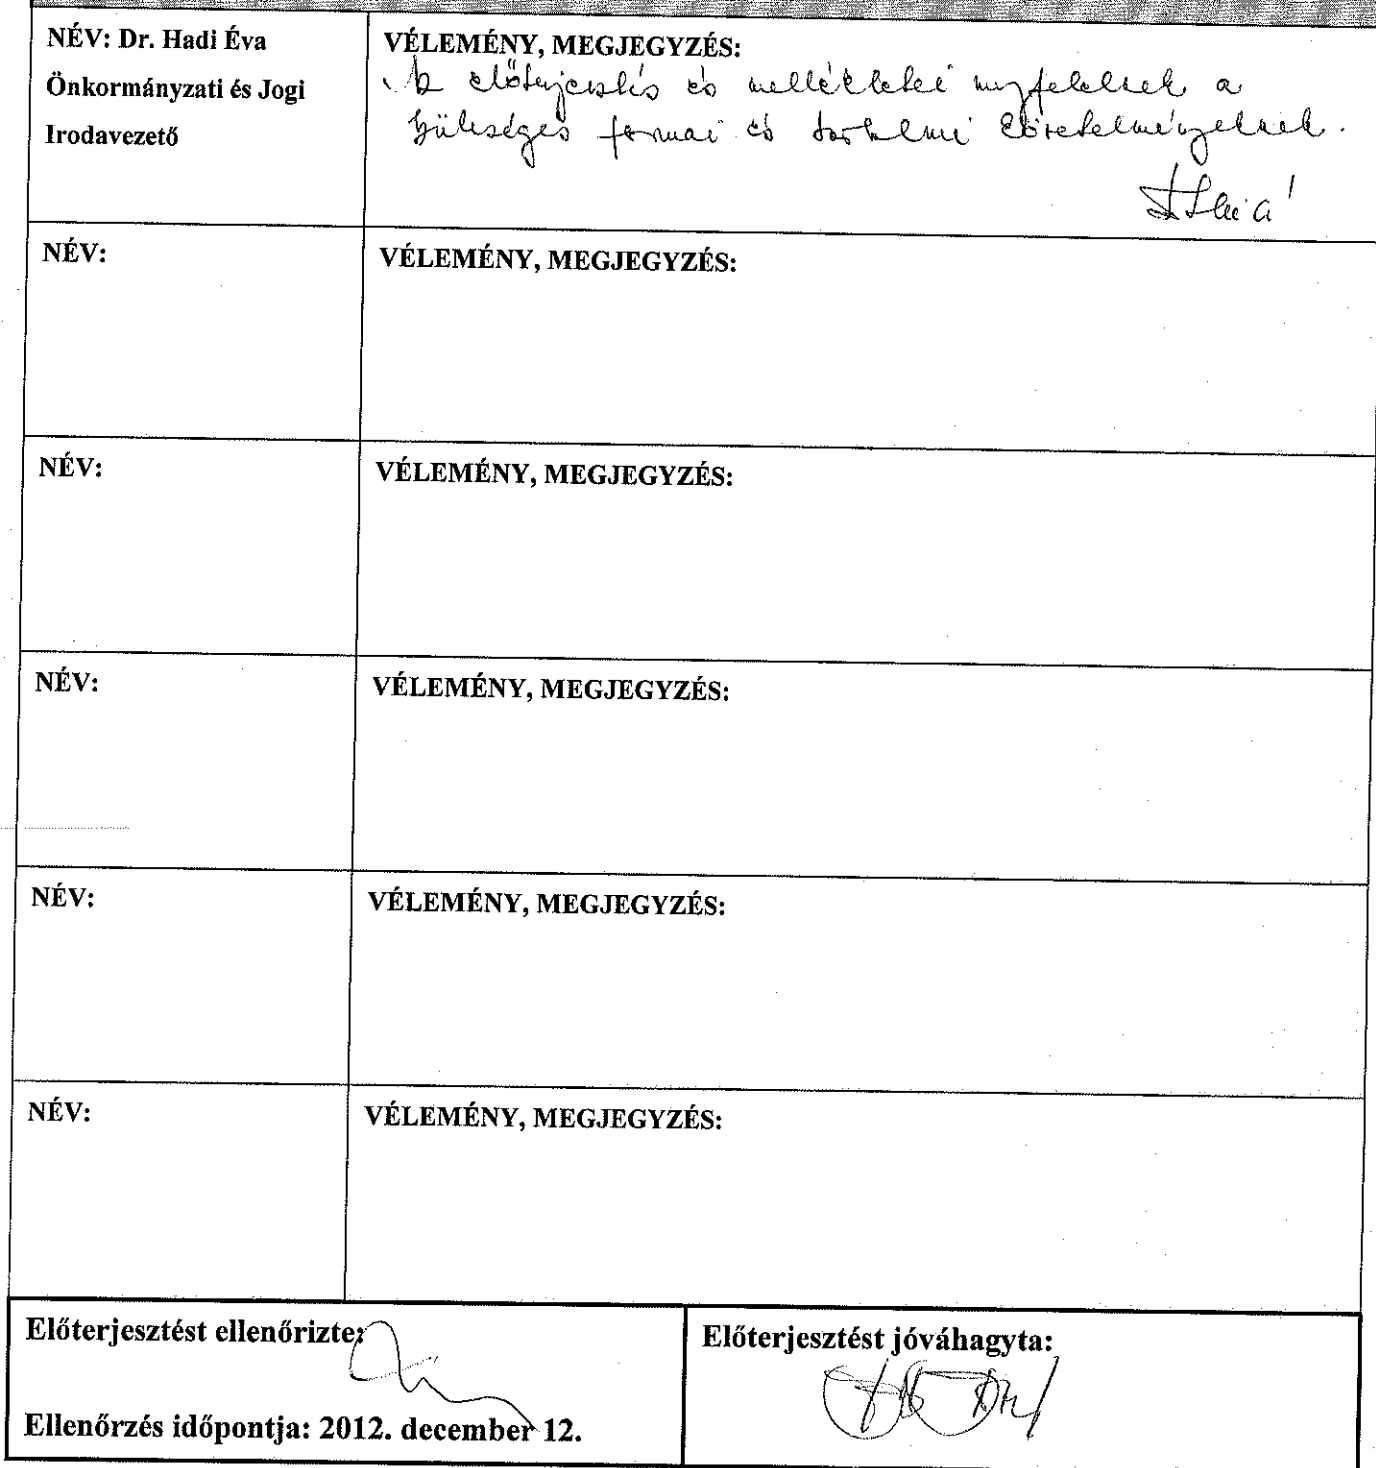 NÉV: Dr. Hadi Éva
Önkormányzati és Jogi
Irodavezető
VÉLEMÉNY, MEGJEGYZÉS:
Az előterjesztés és mellékletei megfelelnek a
szükséges formai és tartalmi követelményeknek.
NÉV:
VÉLEMÉNY, MEGJEGYZÉS:
NÉV:
VÉLEMÉNY, MEGJEGYZÉS:
NÉV:
VÉLEMÉNY, MEGJEGYZÉS:
NÉV:
VÉLEMÉNY, MEGJEGYZÉS:
NÉV:
VÉLEMÉNY, MEGJEGYZÉS:
Előterjesztést ellenőrizte:
Ellenőrzés időpontja: 2012. december 12.
Előterjesztést jóváhagyta: